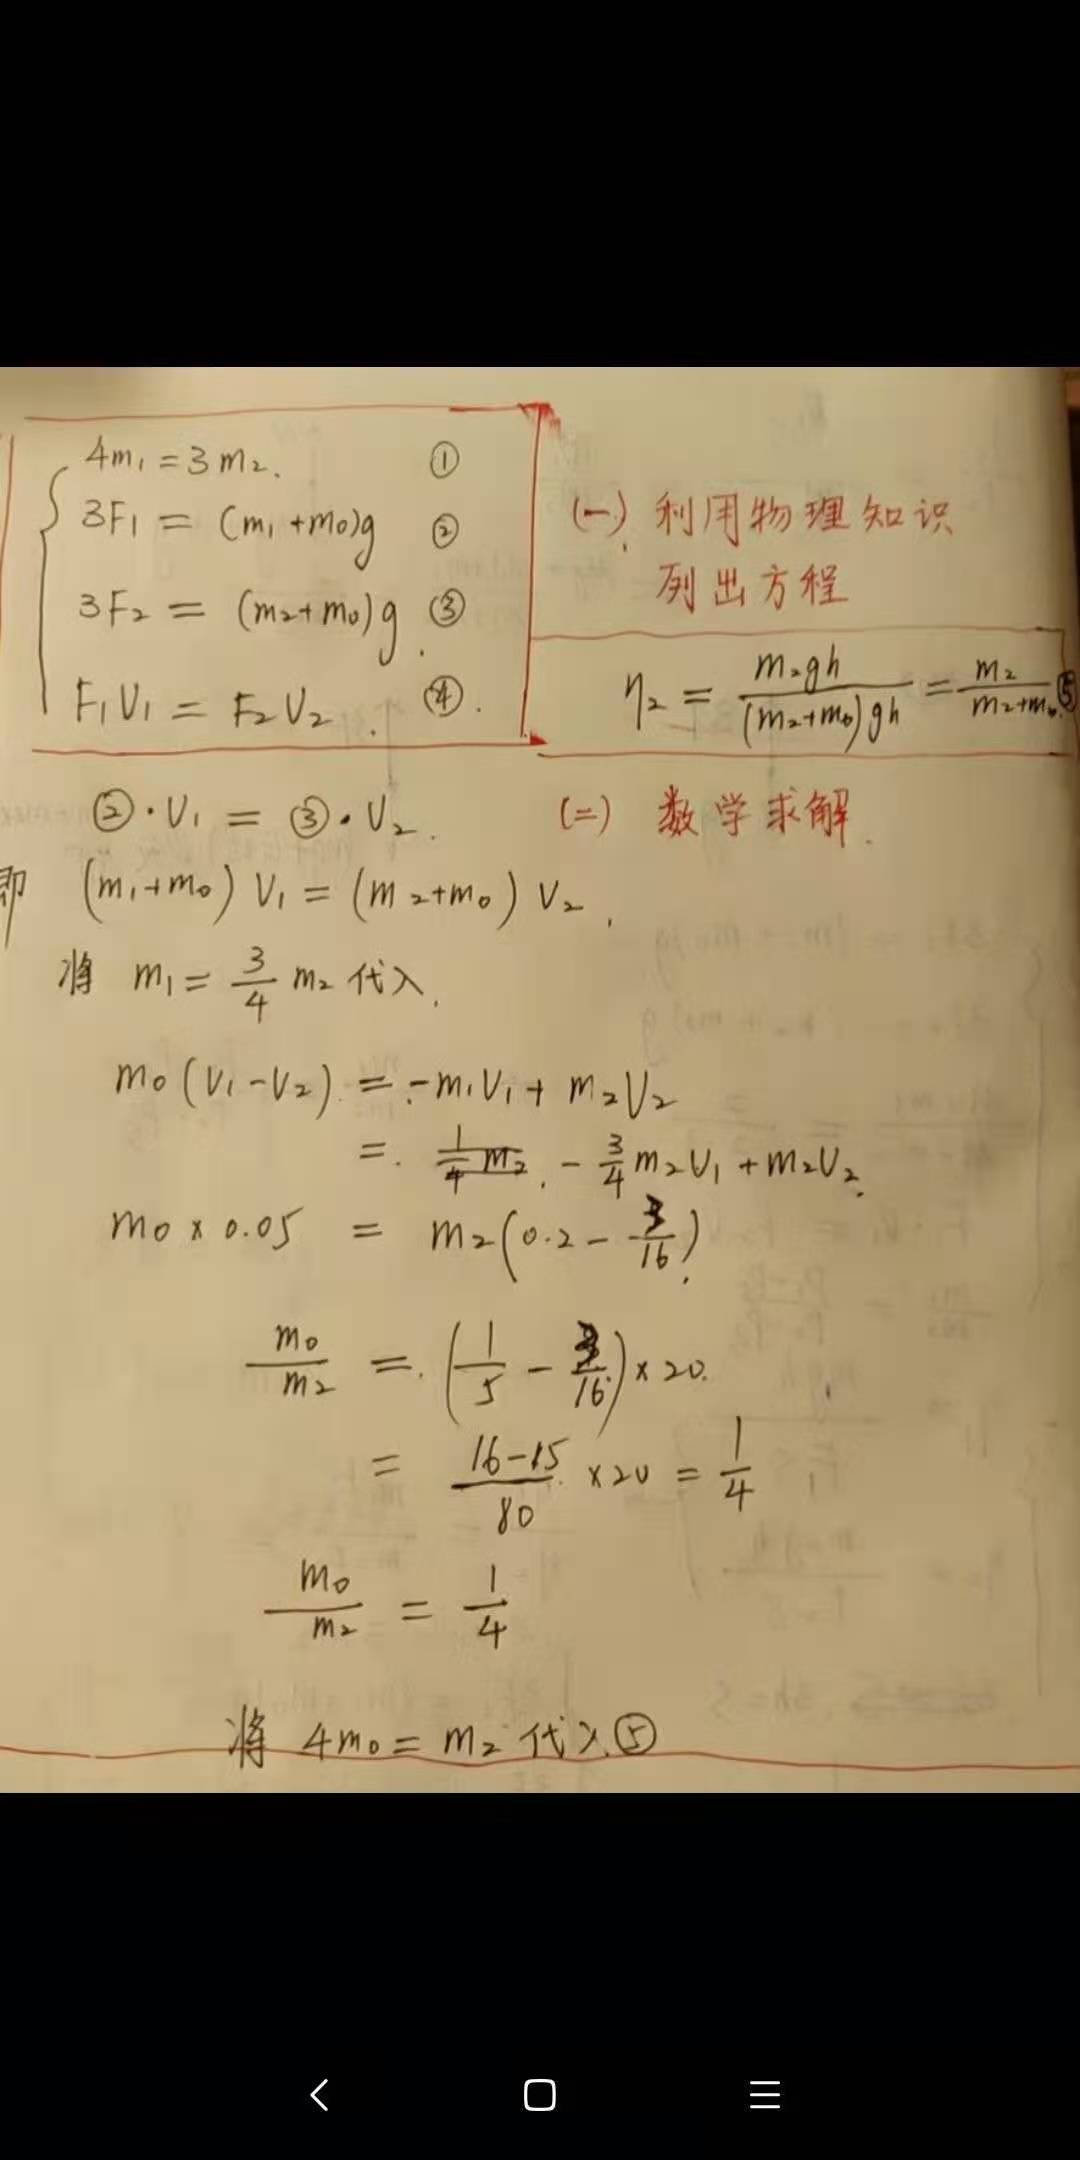 4m₁=3m₂. ①
3F₁=(m₁+m₀)g ②
3F₂=(m₂+m₀)g. ③
F₁V₁=F₂V₂. ④.
(一) 利用物理知识
列出方程
η₂=m₂gh/(m₂+m₀)gh=m₂/m₂+m₀ ⑤
②·V₁=③·V₂.
(二) 数学求解.
即 (m₁+m₀)V₁=(m₂+m₀)V₂,
将 m₁=3/4 m₂ 代入.
m₀(V₁-V₂)=-m₁V₁+m₂V₂
=-3/4 m₂V₁+m₂V₂.
m₀×0.05=m₂(0.2-3/16)
m₀/m₂=(1/5-3/16)×20.
=16-15/80×20=1/4
m₀/m₂=1/4
将 4m₀=m₂ 代入⑤